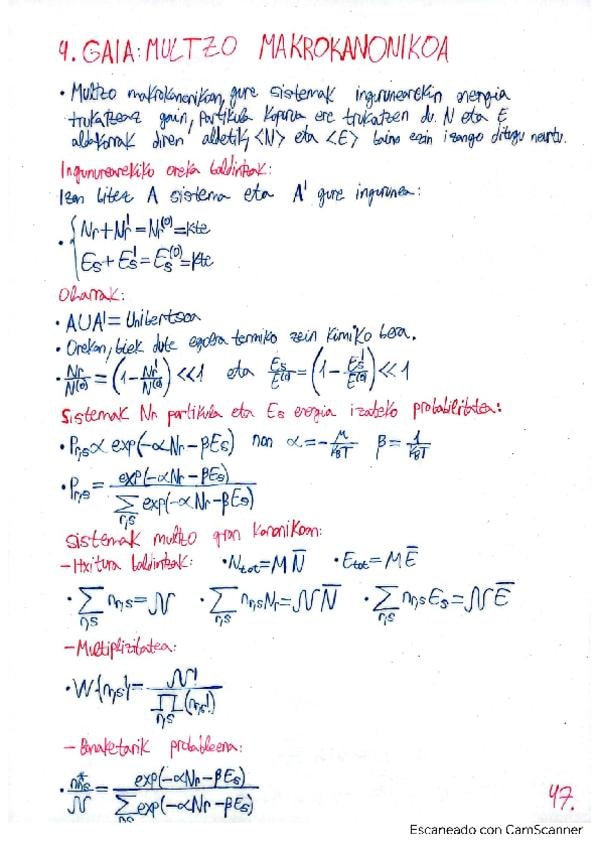 4. GAIA: MULTZO MAKROKANONIKOA
• Multzo makrokanonikoan, gure sistemak ingurunearekin energia
trukatzeaz gain, partikula kopurua ere trukatzen du. N eta E
aldakorrak diren aldetik, <N> eta <E> baino ezin izango ditugu neurtu.
Ingurunearekiko oreka baldintzak:
Izan bitez A sistema eta A' gure ingurunea:
• { Nr + Nr' = Nr^(0) = kte
Es + Es' = Es^(0) = kte
Oharrak:
• AUA' = Unibertsoa
• Orekan, biek dute egoera termiko zein kimiko bera.
• Nr/N^(0) = (1 - Nr'/N^(0)) << 1 eta Es/E^(0) = (1 - Es'/E^(0)) << 1
Sistemak Nr partikula eta Es energia izateko probabilitatea:
• Pr,s ∝ exp(-αNr - βEs) non α = -μ/kBT β = 1/kBT
• Pr,s = exp(-αNr - βEs) / Σr,s exp(-αNr - βEs)
Sistemak multzo gran kanonikoan:
- Itxitura baldintzak: • Ntot = M N̄ • Etot = M Ē
• Σr,s nr,s = 𝒩 • Σr,s nr,s Nr = 𝒩 N̄ • Σr,s nr,s Es = 𝒩 Ē
- Multiplizitatea:
• W{nr,s} = 𝒩! / Πr,s (nr,s!)
- Banaketarik probableena:
• n*r,s / 𝒩 = exp(-αNr - βEs) / Σr,s exp(-αNr - βEs)
47.
Escaneado con CamScanner